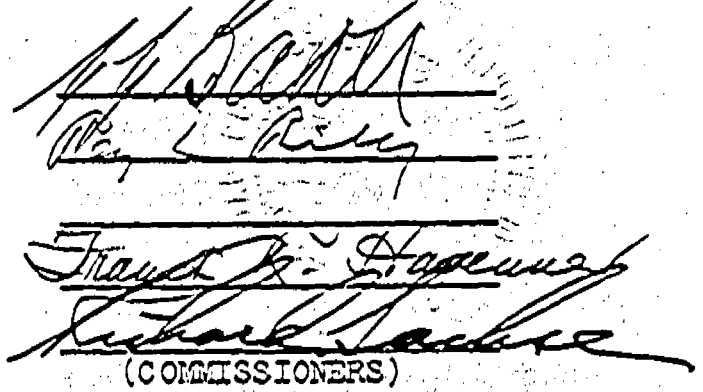 Baker
Ray L. Riley
Franck R. Havenner
Richard Sachse
(COMMISSIONERS)